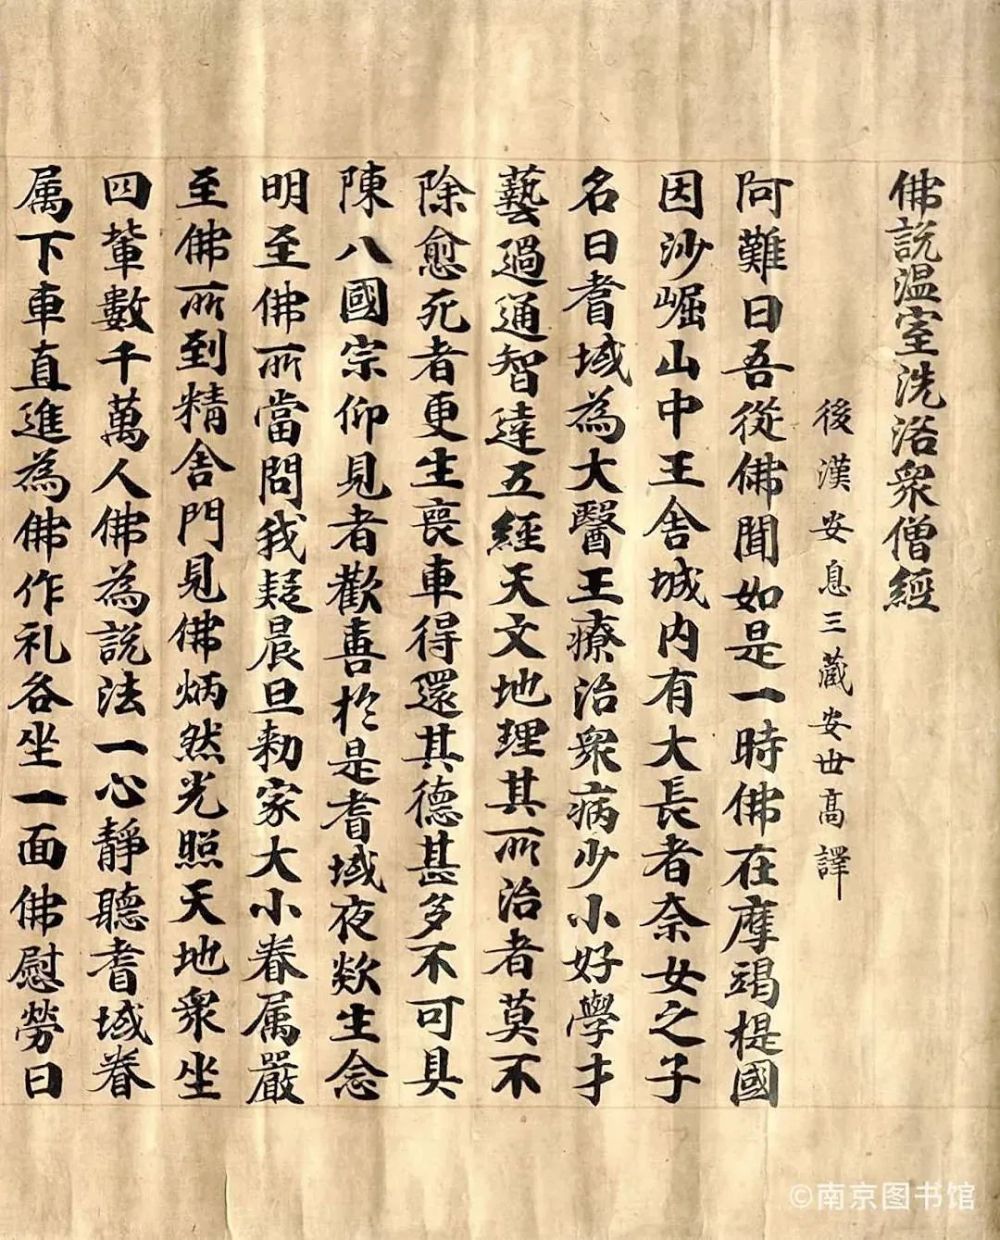 佛說温室洗浴衆僧經
後漢安息三藏安世高譯
阿難曰吾從佛聞如是一時佛在摩竭提國
因沙崛山中王舍城内有大長者柰女之子
名曰耆域為大醫王療治衆病少小好學才
藝過通智達五經天文地理其所治者莫不
除愈死者更生喪車得還其德甚多不可具
陳八國宗仰見者歡喜於是耆域夜欻生念
明至佛所當問我疑晨旦勑家大小眷属嚴
至佛所到精舍門見佛炳然光照天地衆坐
四輩數千萬人佛為說法一心靜聽耆域眷
属下車直進為佛作礼各坐一面佛慰勞曰
©南京图书馆